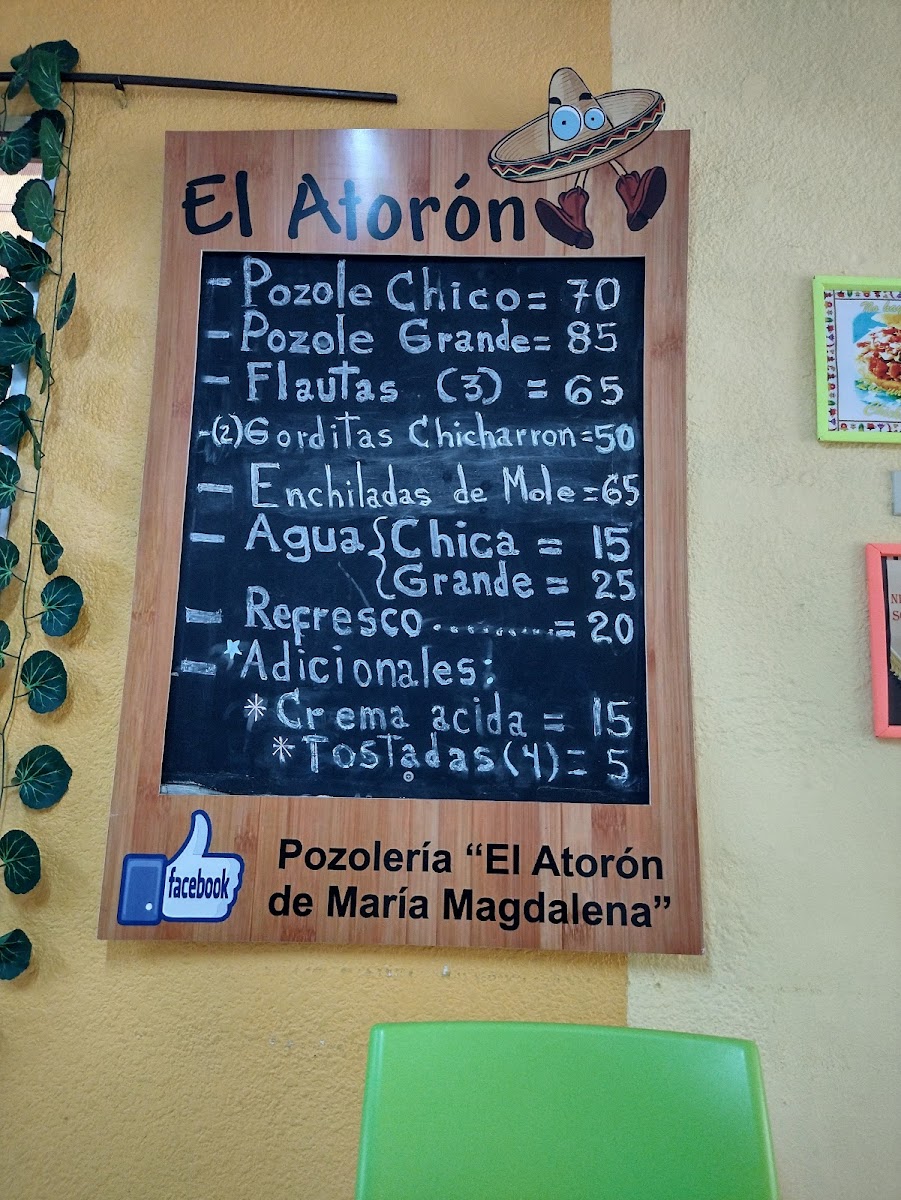 El Atorón
- Pozole Chico = 70
- Pozole Grande = 85
- Flautas (3) = 65
-(2) Gorditas Chicharron = 50
- Enchiladas de Mole = 65
- Agua { Chica = 15
Grande = 25
- Refresco .......... = 20
- *Adicionales:
* Crema acida = 15
* Tostadas (4) = 5
facebook
Pozolería “El Atorón
de María Magdalena”